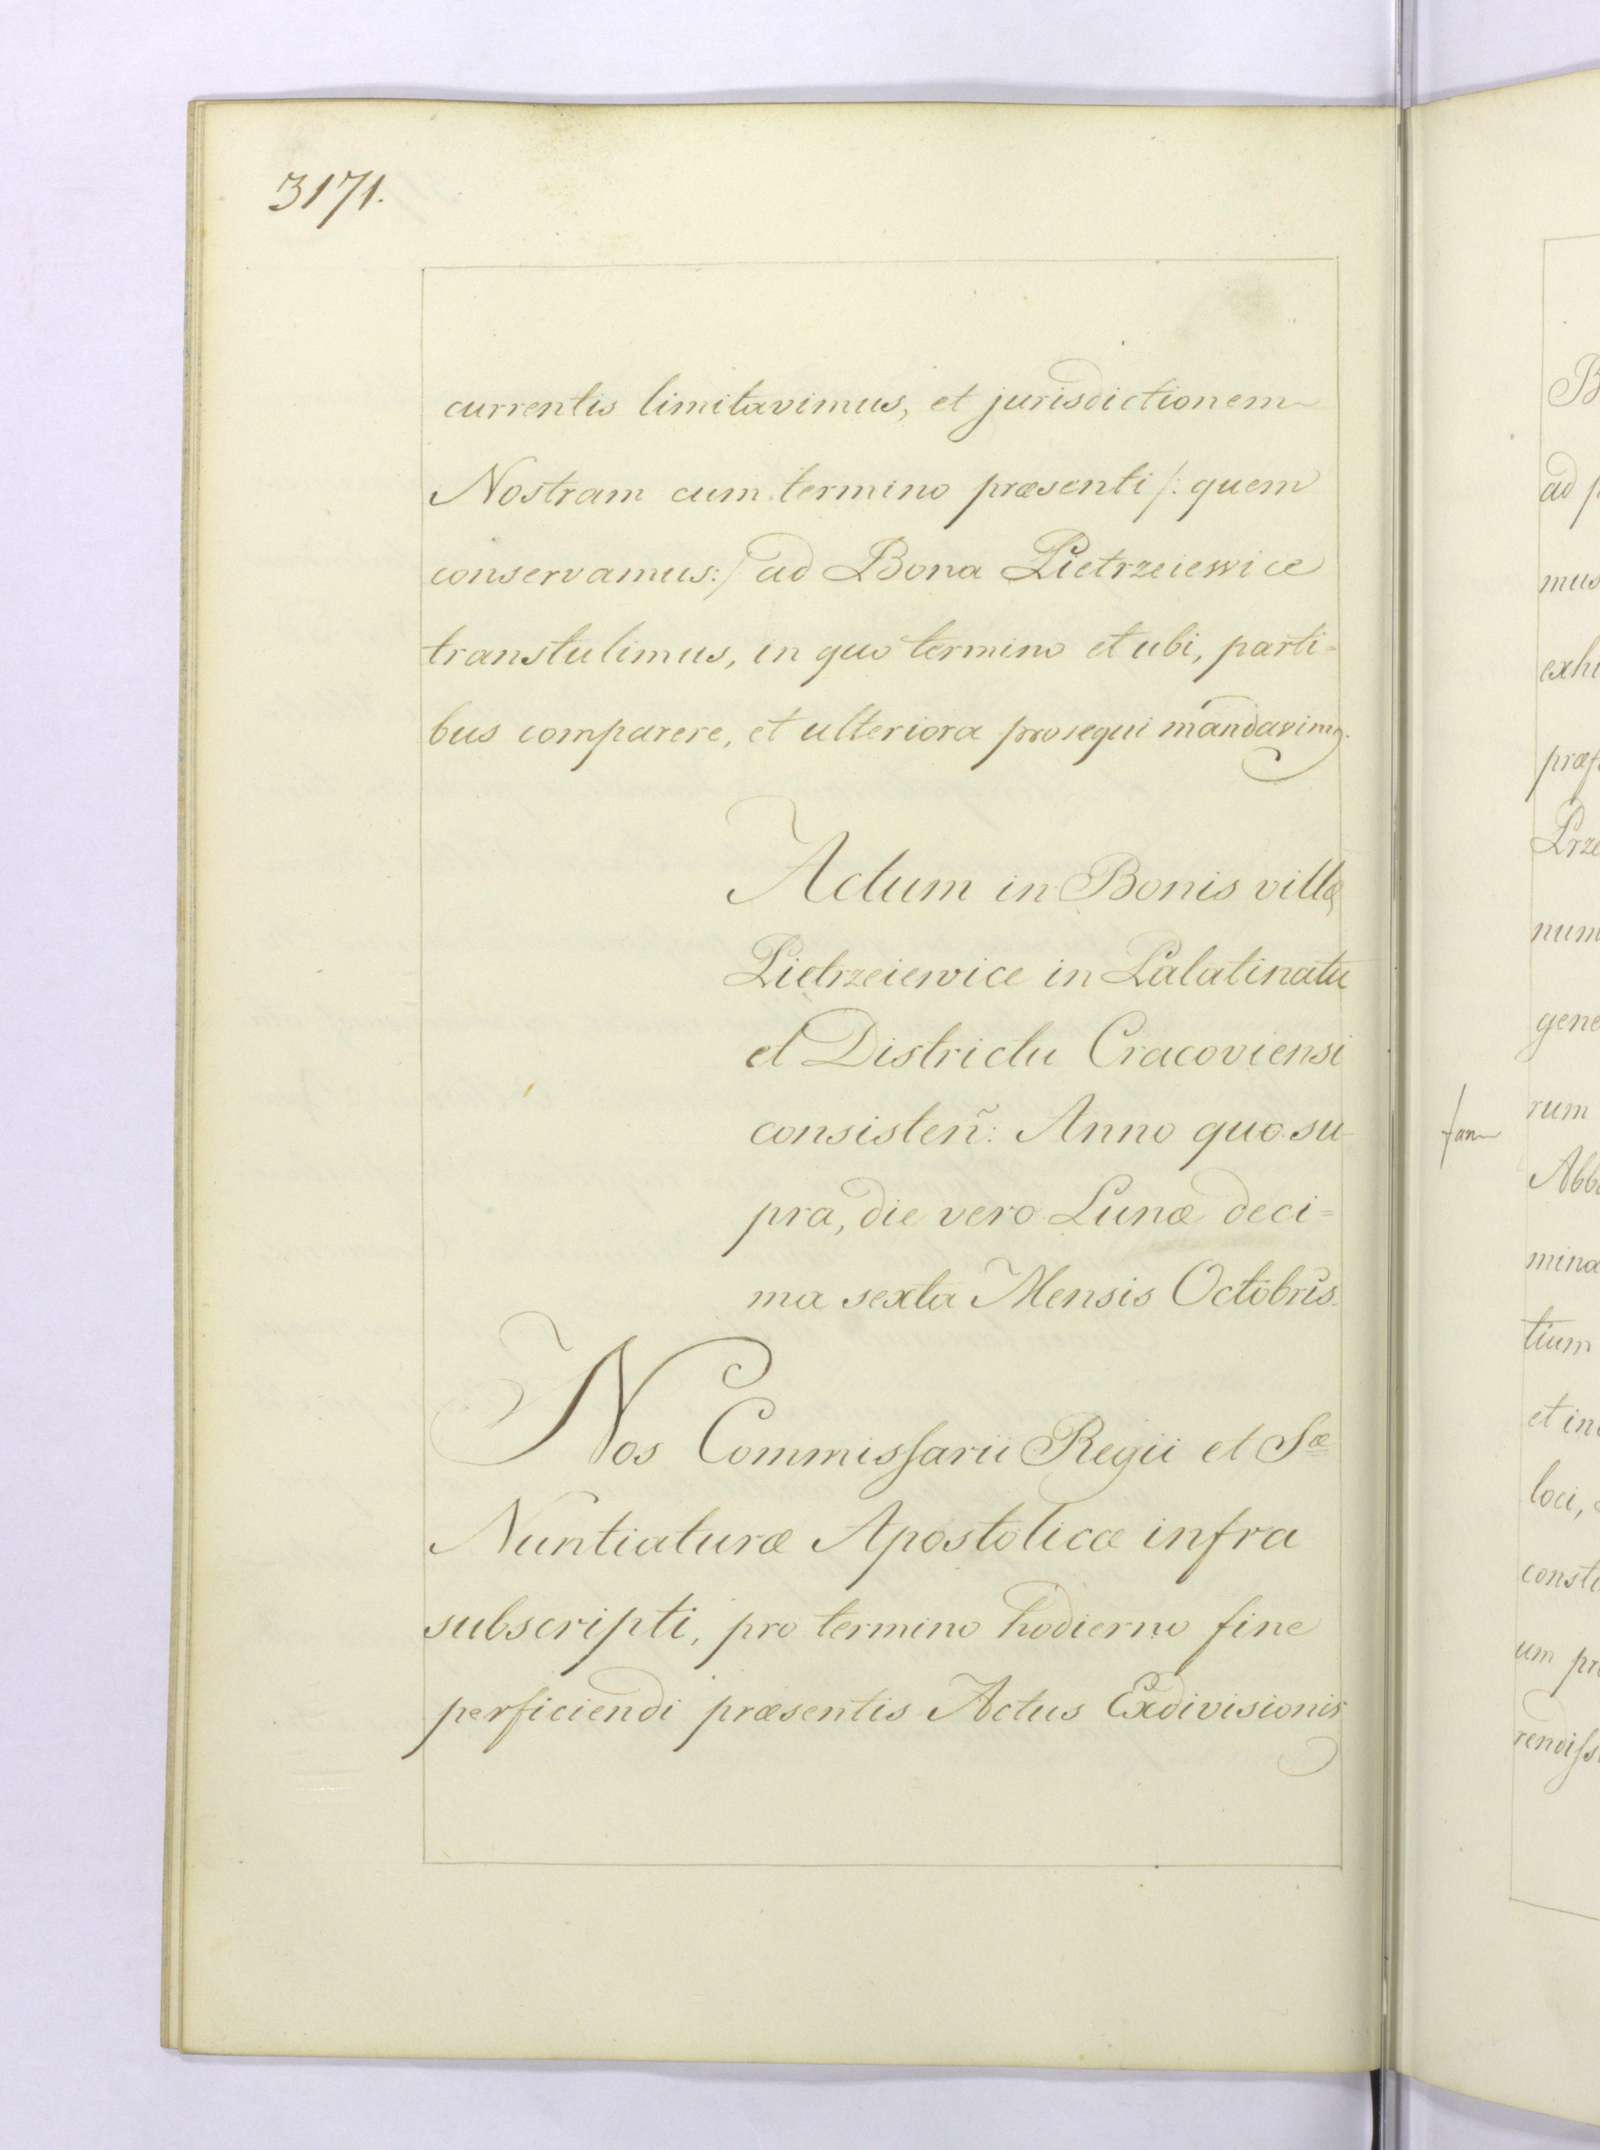 3171.
currentis limitavimus, et jurisdictionem
Nostram cum termino præsenti /: quem
conservamus:/ ad Bona Pietrzeiewice
transtulimus, in quo termino et ubi, parti=
bus comparere, et ulteriora prosequi mandavimq.
Actum in Bonis villę
Pietrzeiewice in Palatinatu
et Districtu Cracoviensi
consisteñ: Anno quo su-
pra, die vero Lunæ deci=
ma sexta Mensis Octobris.
Nos Commissarii Regii et Sæ
Nuntiaturæ Apostolicæ infra
subscripti, pro termino hodierno fine
perficiendi præsentis Actus Exdivisionis
ad
mus
num
gene
rum
Abb
mina
tium
et in
loci,
um